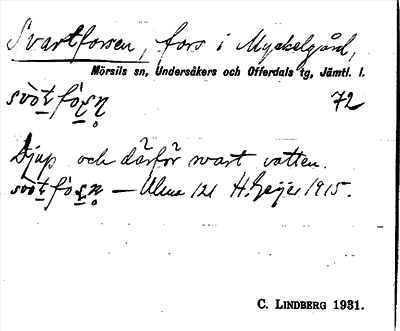 Svartforsen, fors i Myckelgård,
Mörsils sn, Undersåkers och Offerdals tg, Jämtl. l.
72
Djup och därför svart vatten.
— Ulma 121 H. Geijer 1915.
C. LINDBERG 1931.